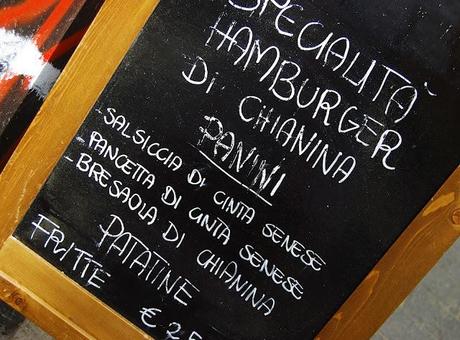 SPECIALITÀ
HAMBURGER
DI CHIANINA
PANINI
- SALSICCIA DI CINTA SENESE
- PANCETTA DI CINTA SENESE
- BRESAOLA DI CHIANINA
PATATINE
FRITTE
€